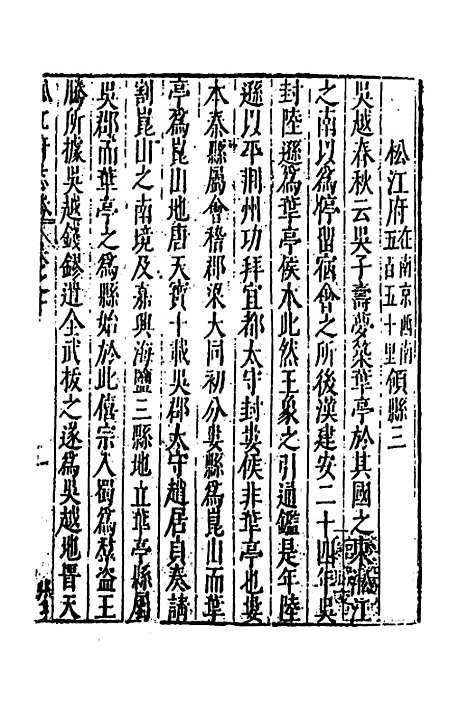 松江府在南京西南五百五十里領縣三
吳越春秋云吳子壽夢築華亭於其國之東松江
之南以為停留宿會之所後漢建安二十四年吳
封陸遜為華亭侯本此然王象之引通鑑是年陸
遜以平荆州功拜宜都太守封婁侯非華亭也婁
本秦縣屬會稽郡梁大同初分婁縣為崑山而華
亭為崑山地唐天寶十載吳郡太守趙居貞奏請
割崑山之南境及嘉興海鹽三縣地立華亭縣屬
吳郡而華亭之為縣始於此僖宗入蜀為羣盜王
騰所據吳越錢鏐遣全武拔之遂為吳越地晉天